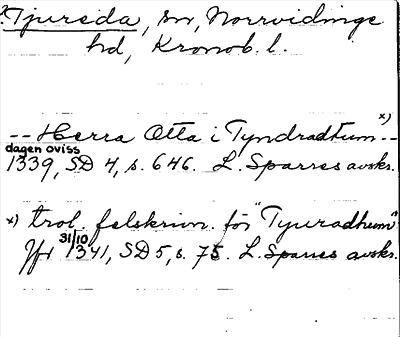 ?Tjureda, sn, Norrvidinge
hd, Kronob. l.
-- Herra Otta i Tyndradhum x) --
dagen oviss
1339, SD 4, s. 646. L. Sparres avskr.
x) trol. felskrivn. för "Tyuradhum"
Jfr 31/10 1341, SD 5, s. 75. L. Sparres avskr.